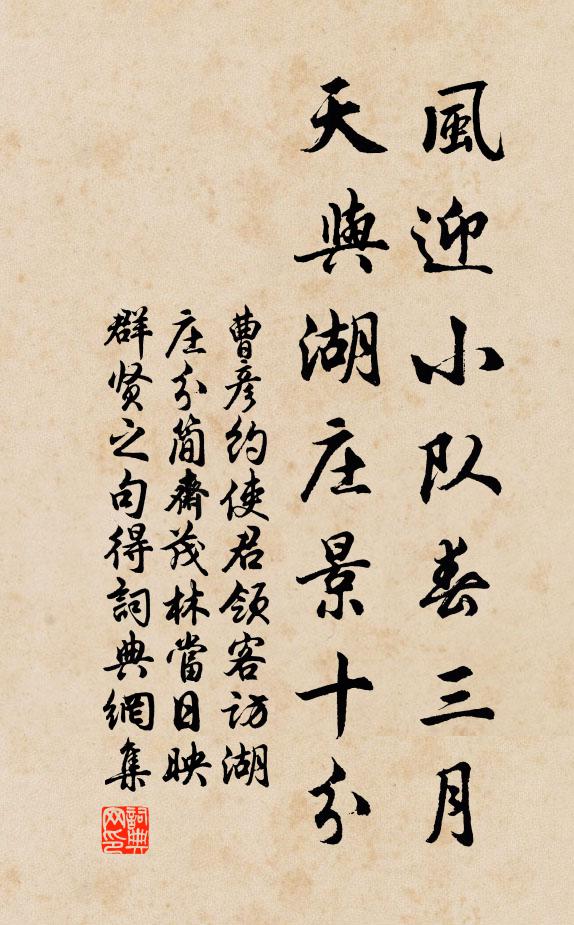 風迎小队春三月
天與湖庄景十分
曹彦約使君领客訪湖
庄分简齋茂林當日映
群贤之句得詞典網集
詞典
网印